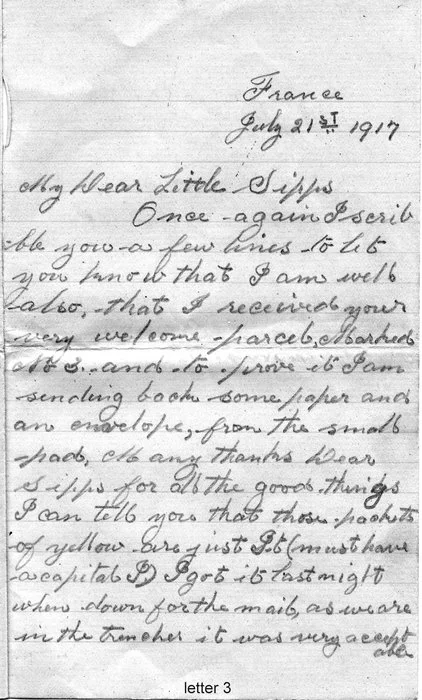 France
July 21st 1917
My Dear Little Sipps
Once again I scrib
ble you a few lines to let
you know that I am well
also, that I received your
very welcome parcel, Marked
No 3. and to prove it I am
sending back some paper and
an envelope, from the small
pad, Many thanks Dear
Sipps for all the good things
I can tell you that those packets
of yellow are just It (must have
a capital I) I got it last night
when down for the mail, as we are
in the trenches it was very accept
able
letter 3